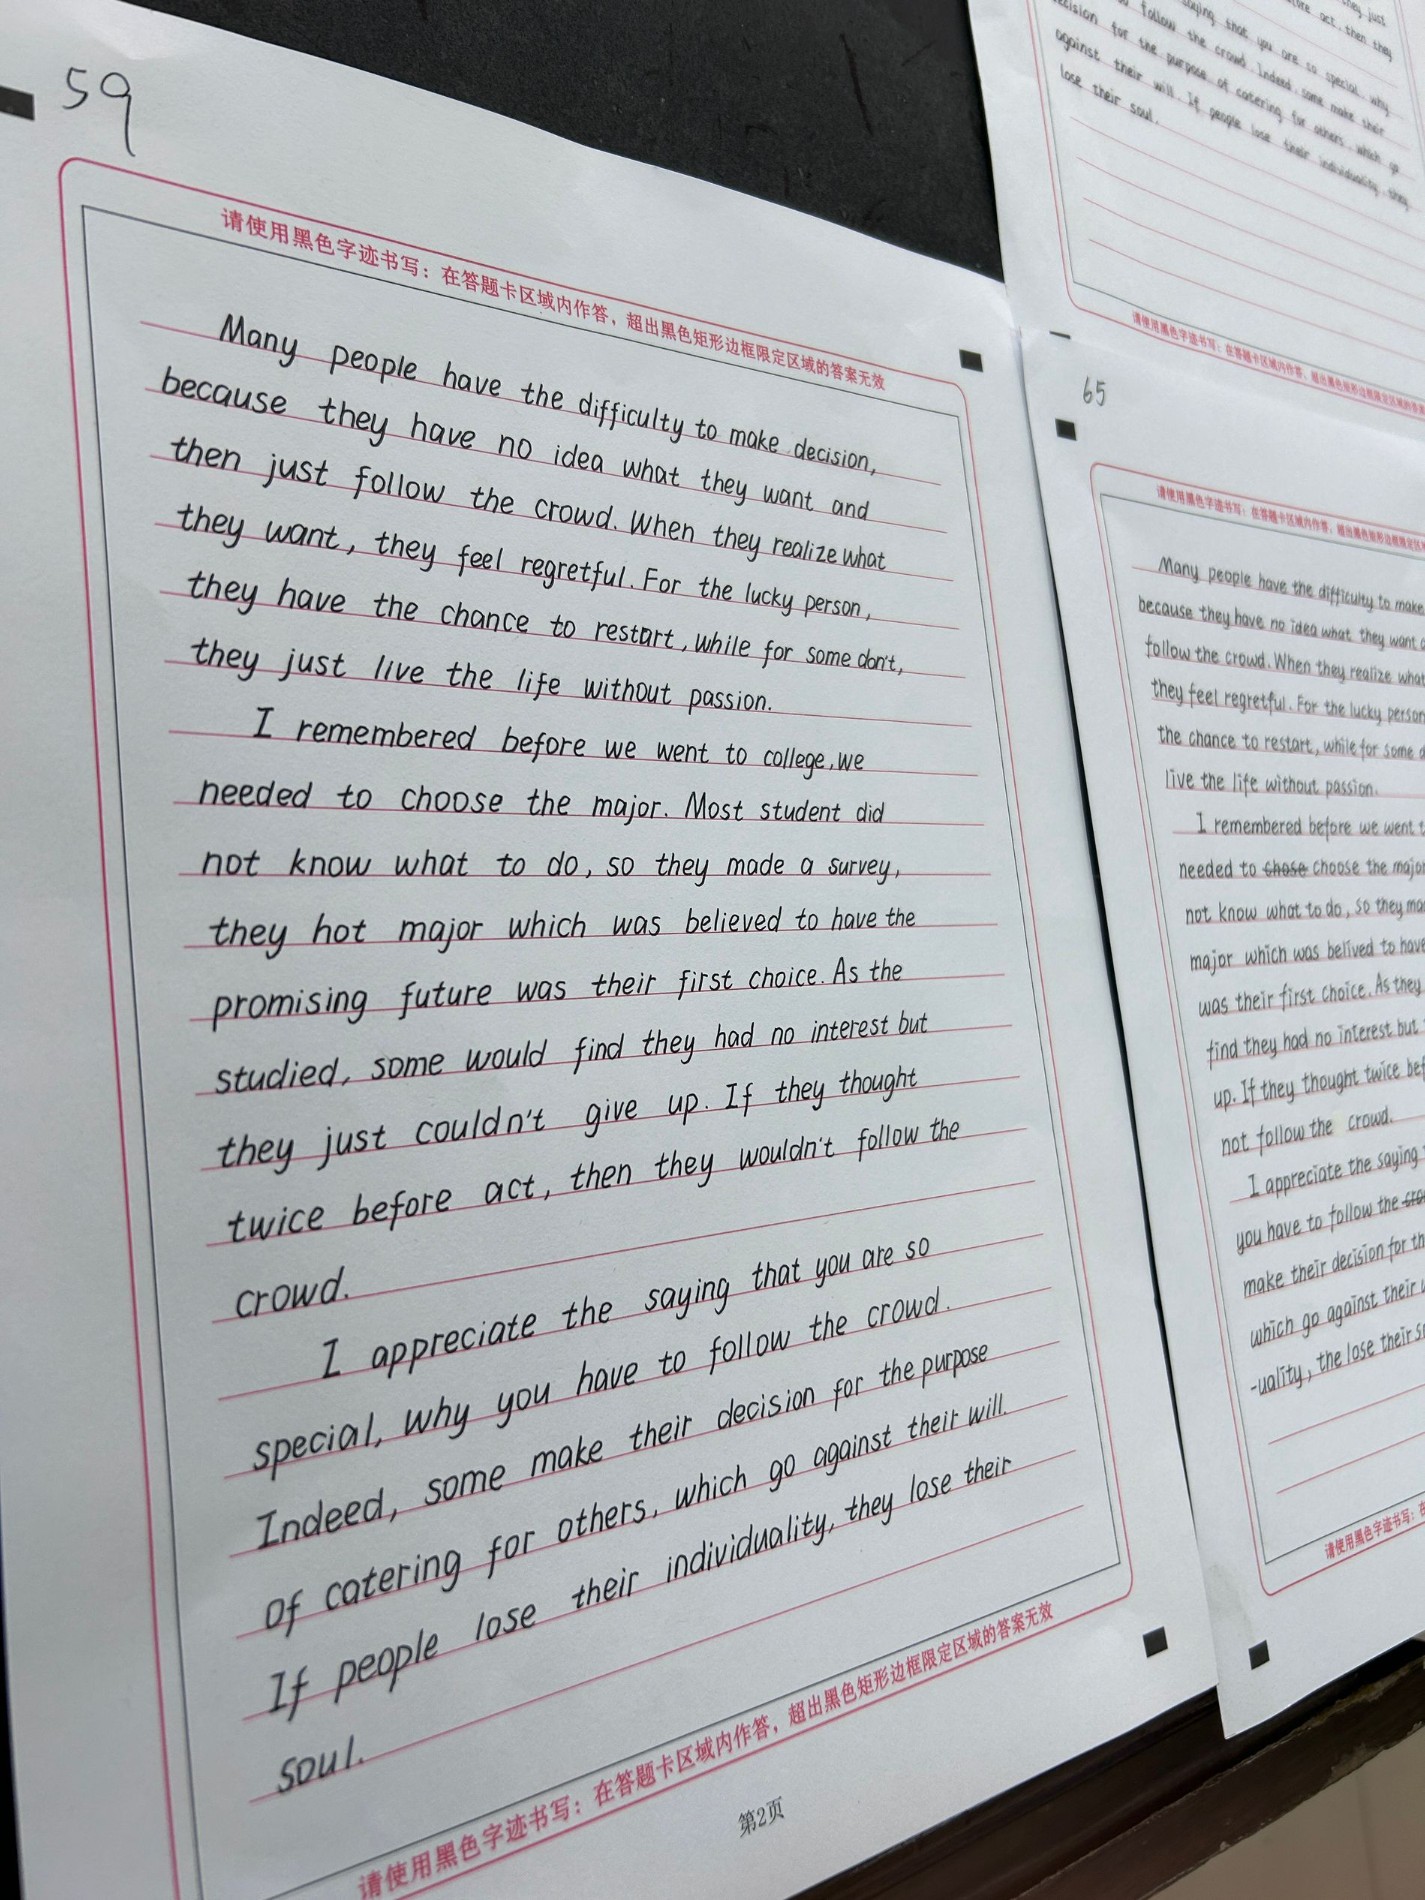 59
请使用黑色字迹书写：在答题卡区域内作答，超出黑色矩形边框限定区域的答案无效
Many people have the difficulty to make decision,
because they have no idea what they want and
then just follow the crowd. When they realize what
they want, they feel regretful. For the lucky person,
they have the chance to restart, while for some don't,
they just live the life without passion.
I remembered before we went to college, we
needed to choose the major. Most student did
not know what to do, so they made a survey,
they hot major which was believed to have the
promising future was their first choice. As the
studied, some would find they had no interest but
they just couldn't give up. If they thought
twice before act, then they wouldn't follow the
crowd.
I appreciate the saying that you are so
special, why you have to follow the crowd.
Indeed, some make their decision for the purpose
of catering for others, which go against their will.
If people lose their individuality, they lose their
soul.
请使用黑色字迹书写：在答题卡区域内作答，超出黑色矩形边框限定区域的答案无效
第2页
they just
act, then they
saying that you are so special, why
follow the crowd. Indeed, some make their
for the purpose of catering for others, which go
against their will. If people lose their individuality, they
lose their soul.
请使用黑色字迹书写：在答题卡区域内作答，超出黑色矩形边框限定区域的
65
请使用黑色字迹书写：在答题卡区域内作答，超出黑色矩形边框限定区
Many people have the difficulty to make
because they have no idea what they want
follow the crowd. When they realize what
they feel regretful. For the lucky person
the chance to restart, while for some
live the life without passion.
I remembered before we went
needed to chose choose the major
not know what to do, so they
major which was belived to have
was their first choice. As they
find they had no interest but
up. If they thought twice
not follow the crowd.
I appreciate the saying
you have to follow the
make their decision for
which go against their
-uality, the lose their
请使用黑色字迹书写：